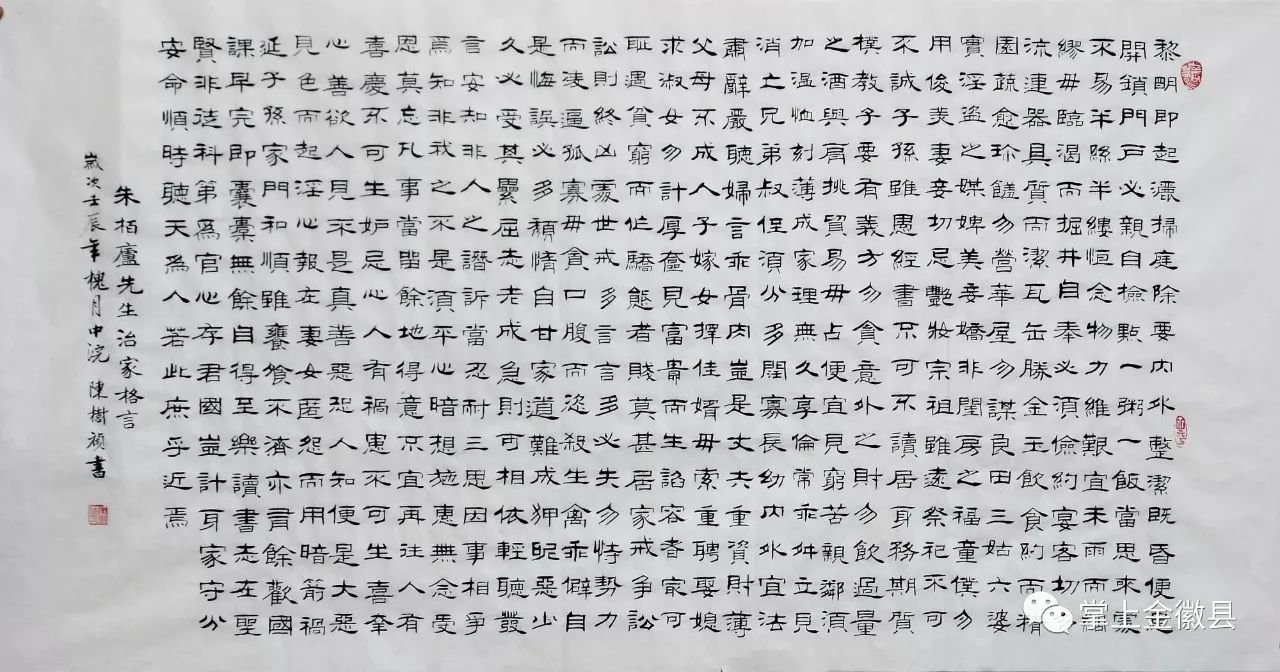 黎明即起灑掃庭除要內外整潔既昏便
開鎖門戶必親自檢點一粥一飯當思來處
不易半絲半縷恒念物力維艱宜未雨而綢
繆毋臨渴而掘井自奉必須儉約宴客切
流連器具質而潔瓦缶勝金玉飲食約而精
園蔬愈珍饈勿營華屋勿謀良田三姑六婆
實淫盜之媒婢美妾嬌非閨房之福童僕勿
用俊美妻妾切忌艷妝宗祖雖遠祭祀不可
不誠子孫雖愚經書不可不讀居身務期質
樸教子要有義方勿貪意外之財勿飲過量
之酒與肩挑貿易毋占便宜見窮苦親鄰須
加溫恤刻薄成家理無久享倫常乖舛立見
消亡兄弟叔侄須分多潤寡長幼內外宜法
肅辭嚴聽婦言乖骨肉豈是丈夫重資財薄
父母不成人子嫁女擇佳婿毋索重聘娶媳
求淑女勿計厚奩見富貴而生諂容者最可
恥遇貧窮而作驕態者賤莫甚居家戒爭訟
訟則終凶處世戒多言言多必失勿恃勢力
而凌逼孤寡毋貪口腹而恣殺生禽乖僻自
是悔誤必多頹惰自甘家道難成狎昵惡少
久必受其累屈志老成急則可相依輕聽發
言安知非人之譖訴當忍耐三思因事相爭
焉知非我之不是須平心暗想施惠無念受
恩莫忘凡事當留餘地得意不宜再往人有
喜慶不可生妒忌心人有禍患不可生喜幸
心善欲人見不是真善惡恐人知便是大惡
見色而起淫心報在妻女匿怨而用暗箭禍
延子孫家門和順雖饔飧不濟亦有餘歡國
課早完即囊橐無餘自得至樂讀書志在聖
賢非徒科第為官心存君國豈計身家守分
安命順時聽天為人若此庶乎近焉
朱栢廬先生治家格言
歲次壬辰年槐月中浣 陳樹禎書
掌上金徽县